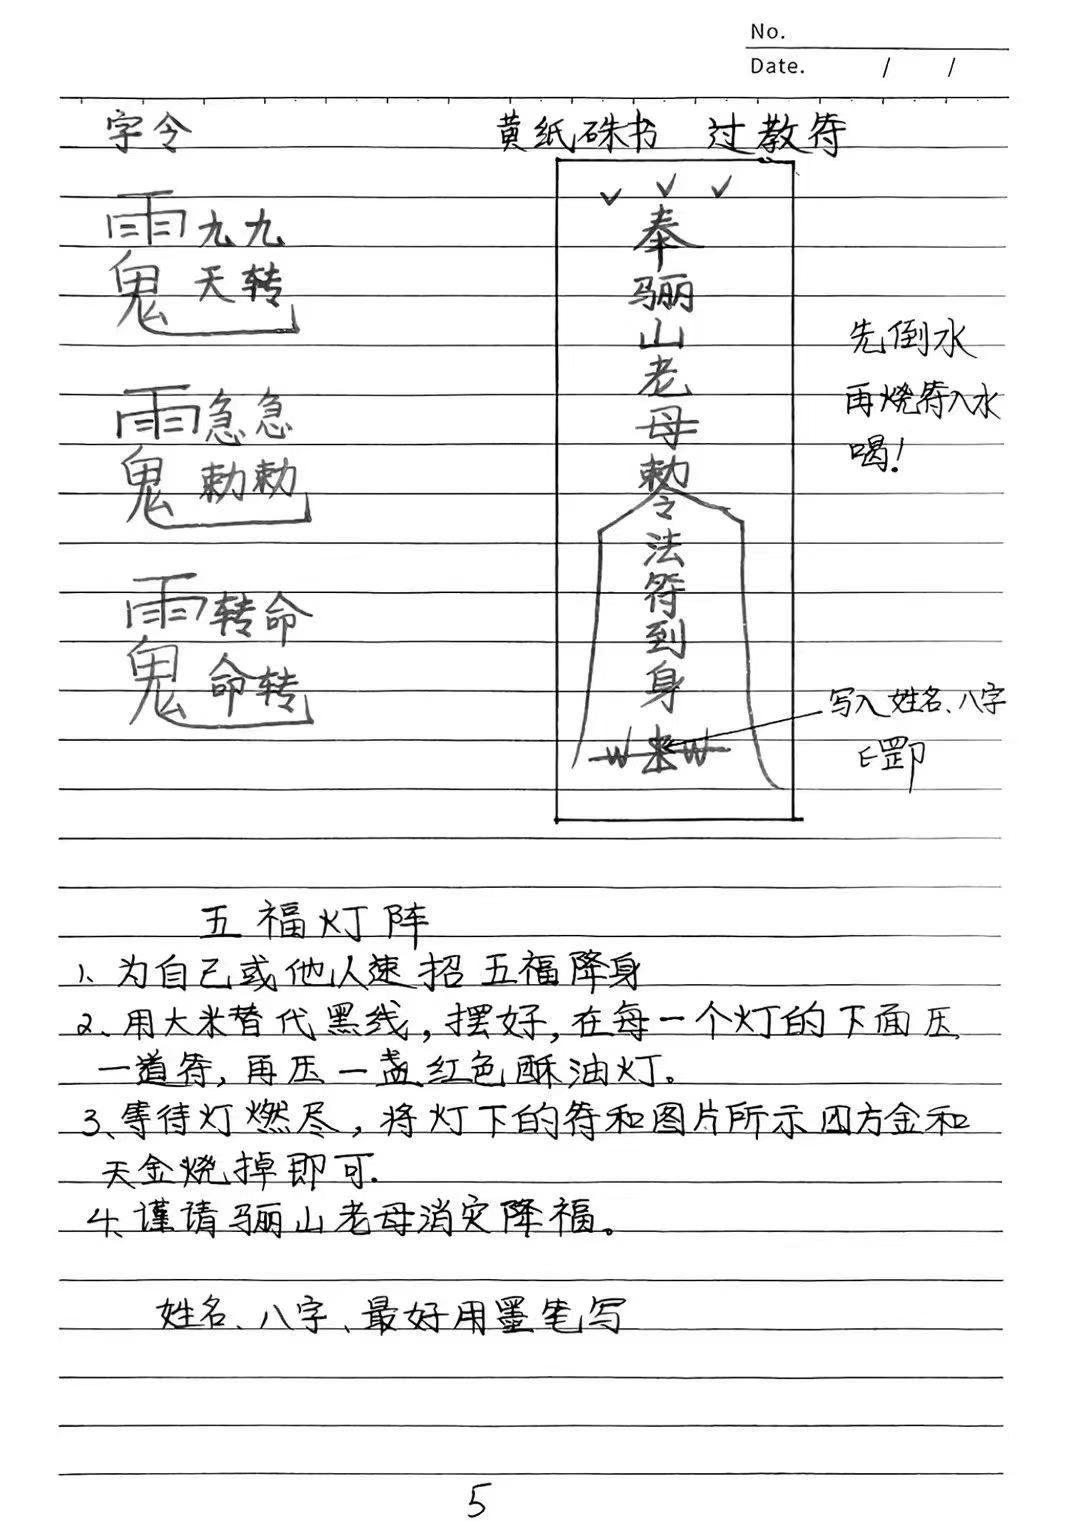 No.
Date. / /
字令
黄纸硃书 过教符
雨九九
鬼天转
雨急急
鬼勅勅
雨转命
鬼命转
奉
骊
山
老
母
勅
令
法
符
到
身
先倒水
再烧符入水
喝!
写入姓名、八字
五福灯阵
1、为自己或他人速招五福降身
2、用大米替代黑线,摆好,在每一个灯的下面压
一道符,再压一盏红色酥油灯。
3、等待灯燃尽,将灯下的符和图片所示四方金和
天金烧掉即可.
4、谨请骊山老母消灾降福。
姓名、八字、最好用墨笔写
5